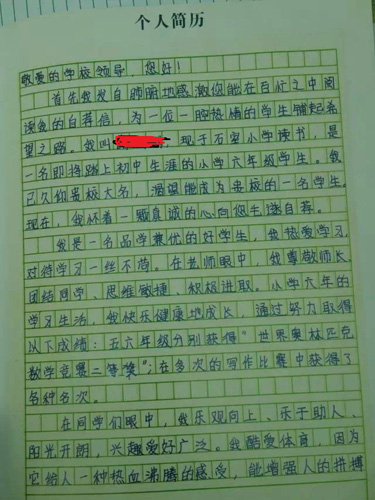 个人简历
敬爱的学校领导，您好！
首先我发自肺腑地感激您能在百忙之中阅
读我的自荐信，为一位一腔热情的学生铺起希
望之路。我叫，现于石室小学读书，是
一名即将踏上初中生涯的小学六年级学生。我
已久仰贵校大名，渴望能成为贵校的一名学生。
现在，我怀着一颗真诚的心向您毛遂自荐。
我是一名品学兼优的好学生，我热爱学习，
对待学习一丝不苟。在老师眼中，我尊敬师长、
团结同学、思维敏捷、积极进取。小学六年的
学习生活，我快乐健康地成长，通过努力取得
以下成绩：五六年级分别获得“世界奥林匹克
数学竞赛二等奖”；在多次的写作比赛中获得了
各种名次。
在同学们眼中，我乐观向上、乐于助人、
阳光开朗，兴趣爱好广泛。我酷爱体育，因为
它给人一种热血沸腾的感受，能增强人的拼搏